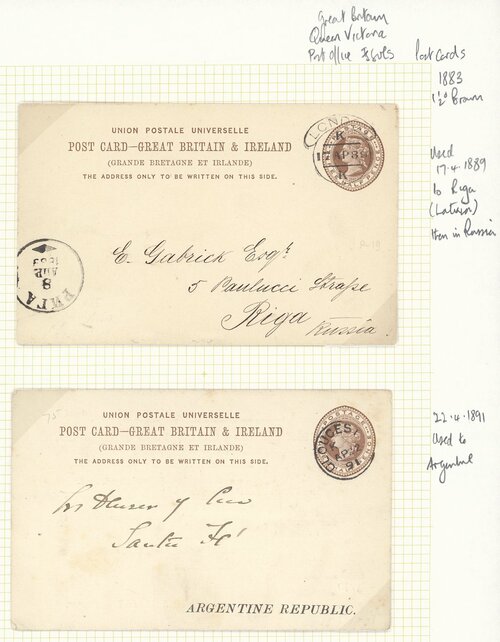 Great Britain
Queen Victoria
Post Office Issues Post Cards
1883
1½d Brown
UNION POSTALE UNIVERSELLE
POST CARD—GREAT BRITAIN & IRELAND
(GRANDE BRETAGNE ET IRLANDE)
THE ADDRESS ONLY TO BE WRITTEN ON THIS SIDE.
LONDON
K
AP 89
K
Used
17.4.1889
to Riga
(Latvia)
then in Russia
E. Gabrick Esqr
5 Paulucci Straße
Riga
Russia
РИГА
8
АПР
1889
UNION POSTALE UNIVERSELLE
POST CARD—GREAT BRITAIN & IRELAND
(GRANDE BRETAGNE ET IRLANDE)
THE ADDRESS ONLY TO BE WRITTEN ON THIS SIDE.
GLOUCEST
AP 22
91
22.4.1891
Used to
Argentine
Santa Fé
ARGENTINE REPUBLIC.